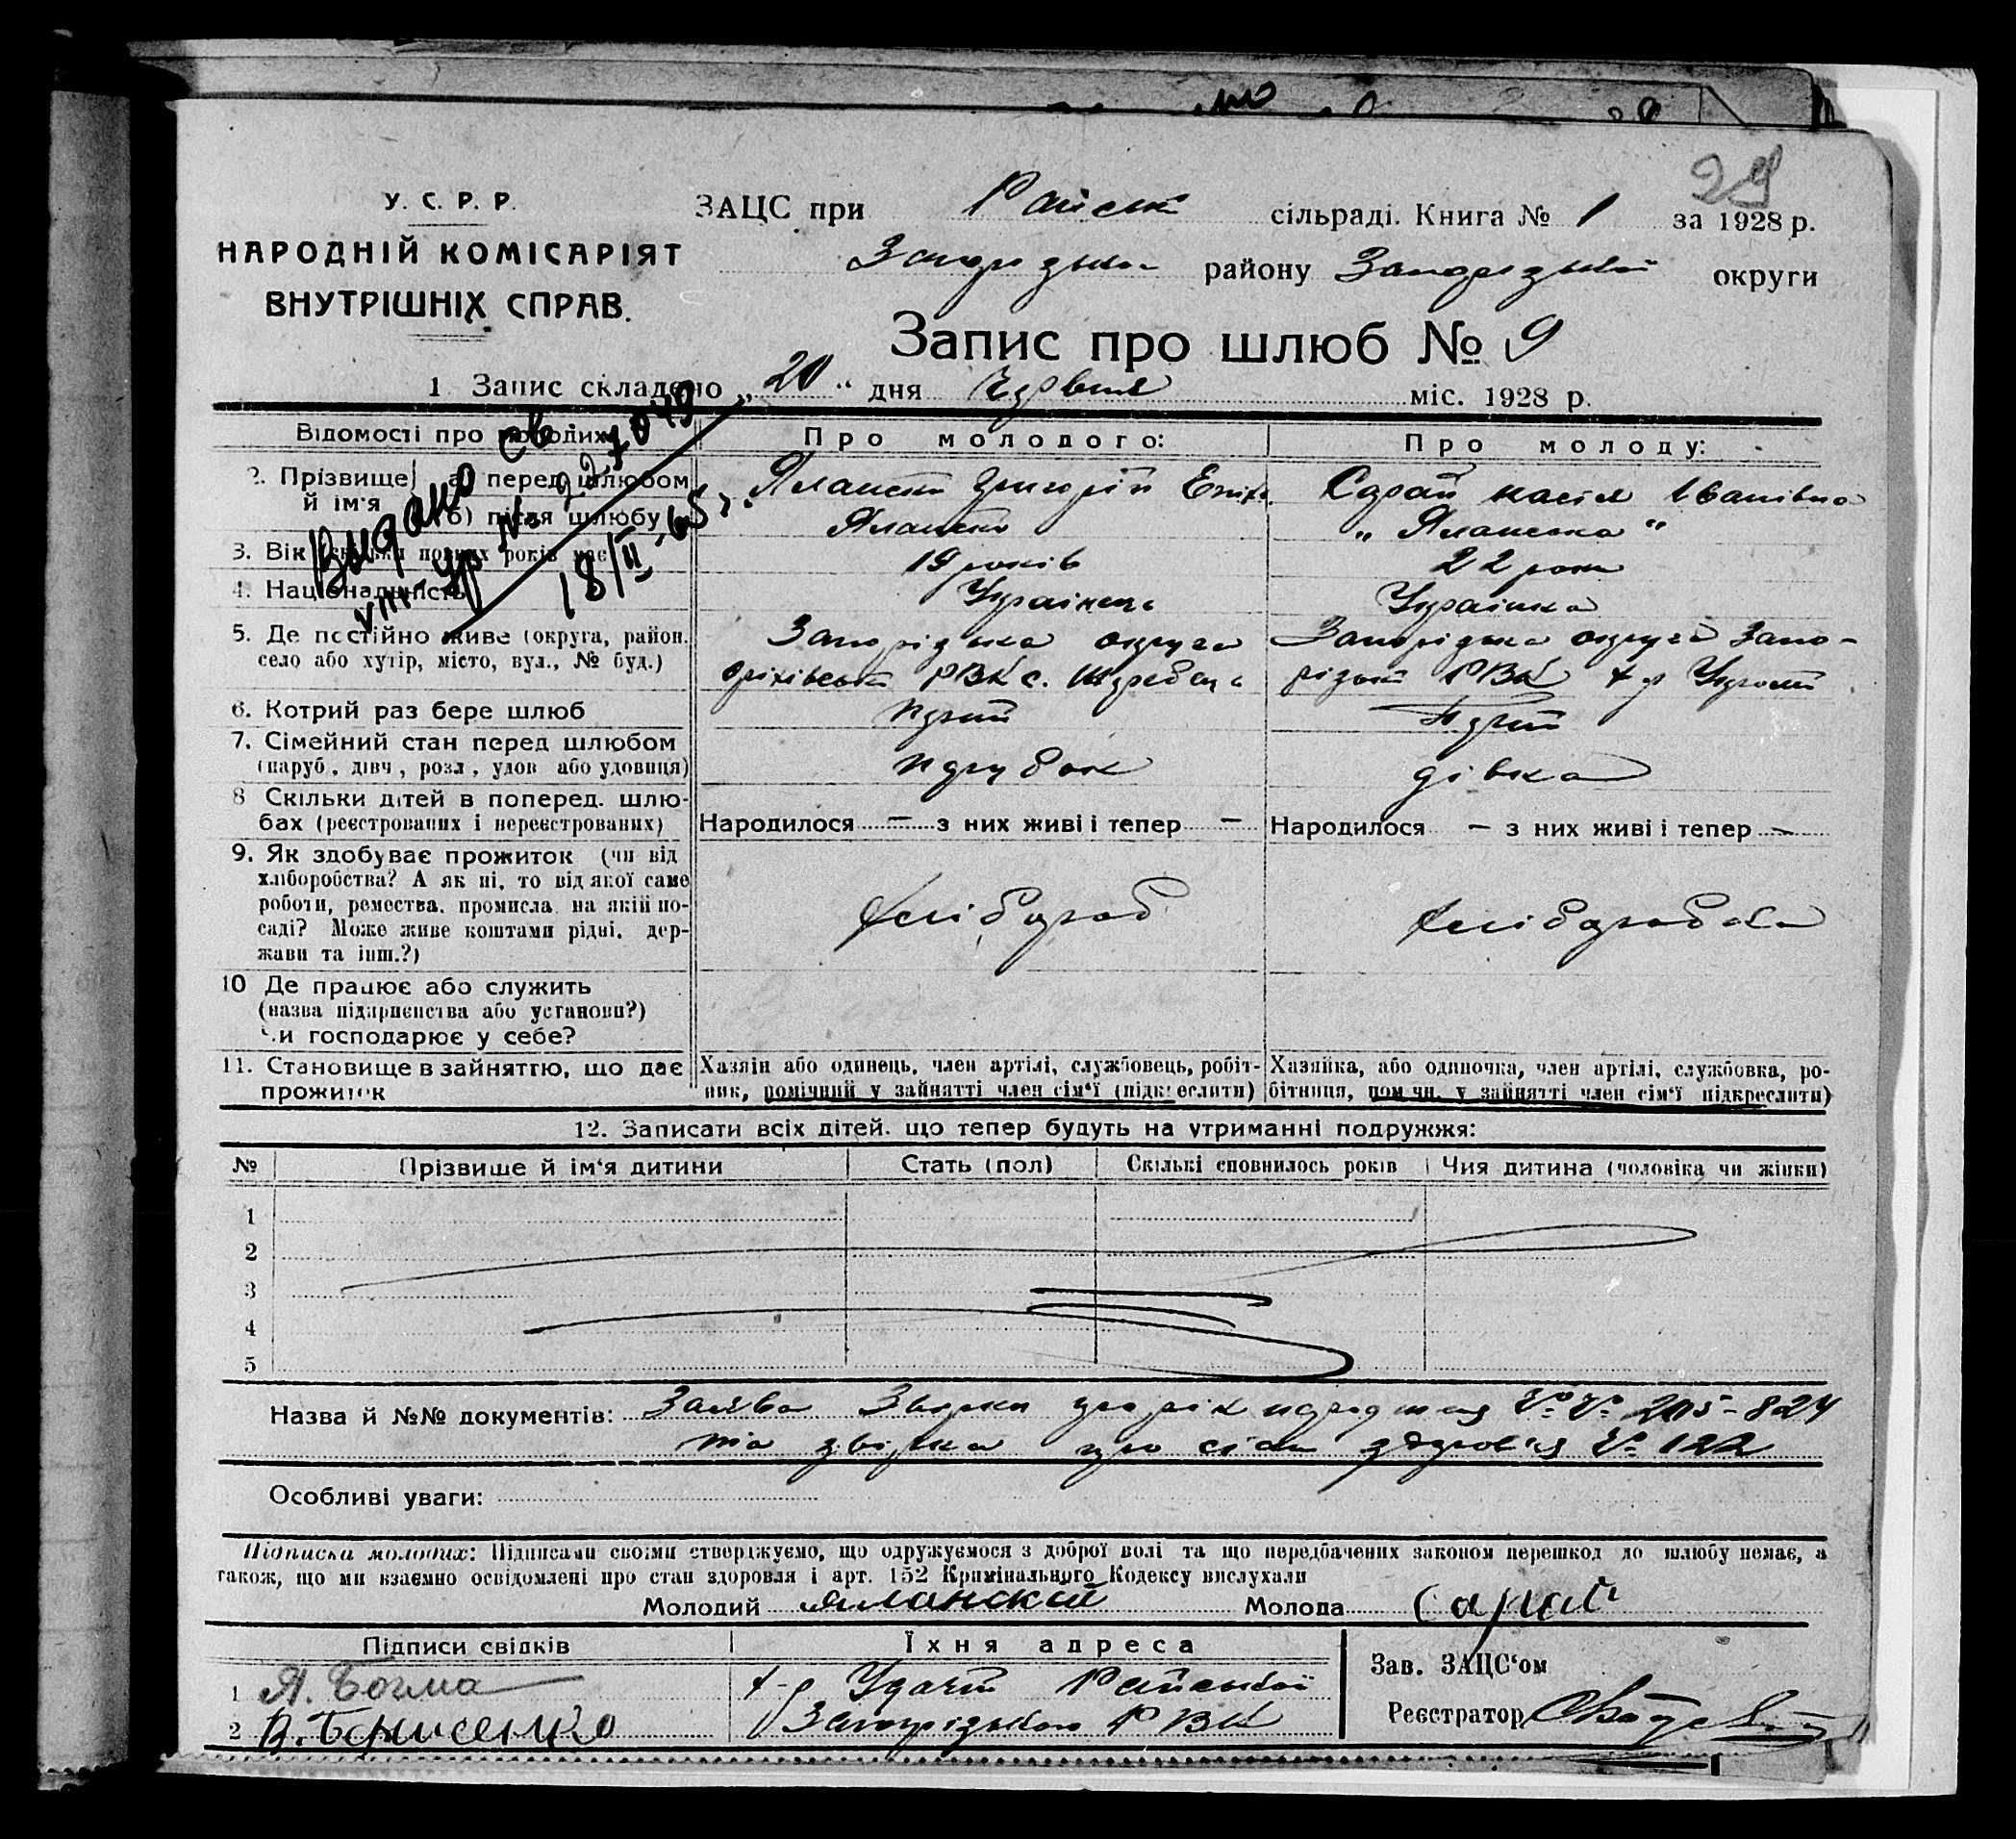 29
У. С. Р. Р.
НАРОДНІЙ КОМІСАРІЯТ
ВНУТРІШНІХ СПРАВ.
ЗАЦС при Райськ сільраді. Книга № 1 за 1928 р.
району округи
Запис про шлюб № 9
1 Запис складено „ 20 “ дня Червня міс. 1928 р.
Видано св
VIII-УР № 227049
18/II-65 г.
Відомості про молодих
Про молодого:
Про молоду:
2. Прізвище й ім'я
а) перед шлюбом
Григорій
Сарай Настя Іванівна
б) після шлюбу
„ Яланська “
3. Вік (скільки повних років має)
19 років
22 роки
4. Національність
Українець
Українка
5. Де постійно живе (округа, район.
село або хутір, місто, вул., № буд.)
Запорізька округа
Оріхівськ РВК с. Жеребець
Запорізька округа Запо-
різьк РВК х-р
6. Котрий раз бере шлюб
Перший
7. Сімейний стан перед шлюбом
(паруб, дівч, розл, удов або удовиця)
парубок
дівка
8 Скільки дітей в поперед. шлю-
бах (реєстрованих і нереєстрованих)
Народилося — з них живі і тепер —
Народилося — з них живі і тепер —
9. Як здобуває прожиток (чи від
хліборобства? А як ні, то від якої саме
роботи, ремества, промисла на якій по-
саді? Може живе коштами рідні, дер-
жави та інш.?)
Хлібороб
Хліборобка
10 Де працює або служить
(назва підприємства або установи?)
Чи господарює у себе?
11. Становище в зайняттю, що дає
прожиток
Хазяїн або одинець, член артілі, службовець, робіт-
ник, помічний у зайнятті член сім'ї (підкреслити)
Хазяйка, або одиночка, член артілі, службовка, ро-
бітниця, помічн. у зайнятті член сім'ї підкреслити)
12. Записати всіх дітей, що тепер будуть на утриманні подружжя:
№
Прізвище й ім'я дитини
Стать (пол)
Скількі сповнилось років
Чия дитина (чоловіка чи жінки)
1
2
3
4
5
Назва й №№ документів: Заява Звірки про рік народження №№ 205-824
та звірка про стан здоров'я № 122
Особливі уваги:
Підписка молодих: Підписами своїми стверджуємо, що одружуємося з доброї волі та що передбачених законом перешкод до шлюбу немає, а
також, що ми взаємно освідомлені про стан здоровля і арт. 152 Кримінального Кодексу вислухали
Молодий Яланский Молода Сарай
Підписи свідків
Їхня адреса
Зав. ЗАЦС'ом
1 Я. Богма
х-р Удачн Райської
2 В. Борисенко
Запорізького РВК
Реєстратор